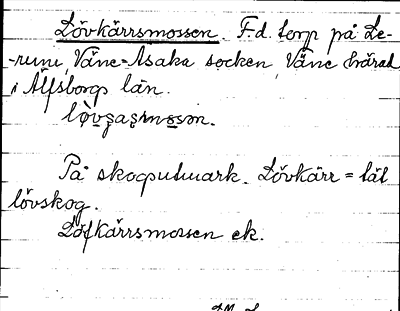 Lövkärrsmossen. F.d. torp på Le-
-rum, Väne-Åsaka socken, Väne härad
i Älfsborgs län.
På skogsutmark. Lövkärr = tät
lövskog.
Löfkärrsmossen ek.